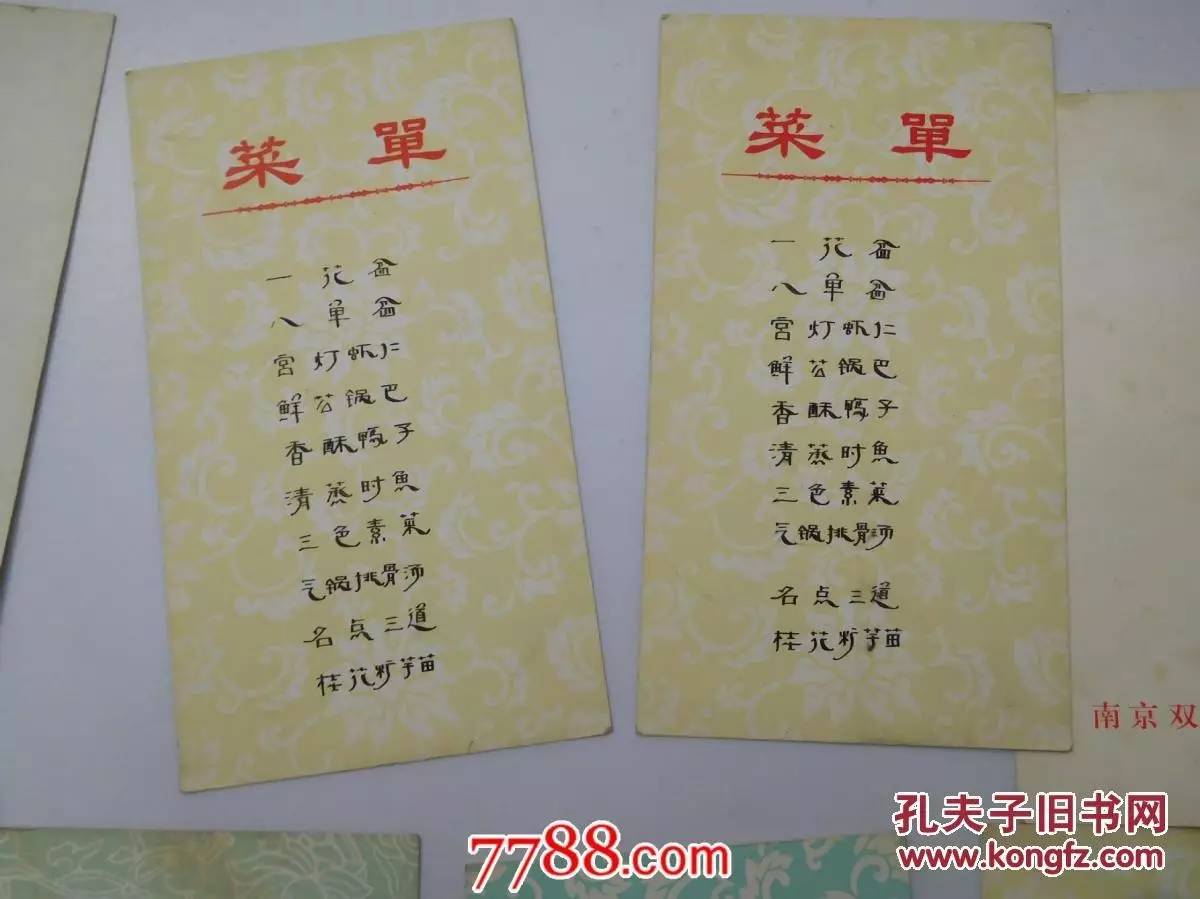 菜單
一花盆
八单盆
宫灯虾仁
鲜公锅巴
香酥鸭子
清蒸时鱼
三色素菜
气锅排骨汤
名点三道
桂花籽芋苗
菜單
一花盆
八单盆
宫灯虾仁
鲜公锅巴
香酥鸭子
清蒸时鱼
三色素菜
气锅排骨汤
名点三道
桂花籽芋苗
南京双
孔夫子旧书网
www.kongfz.com
7788.com